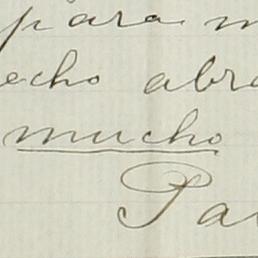 para m
echo abra
mucho
Pa